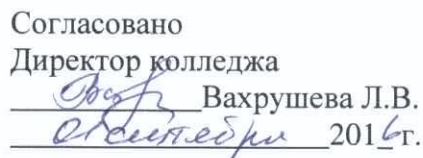 Согласовано
Директор колледжа
Вахрушева Л.В.
01 сентября 2016г.